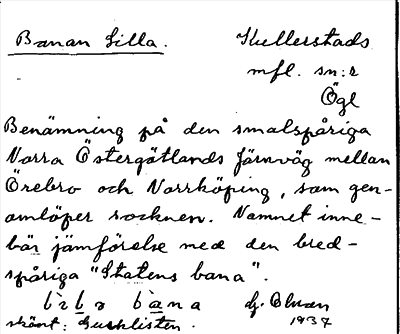 Banan Lilla. Kullerstads
mfl. sn:r
Ögl
Benämning på den smalspåriga
Norra Östergötlands Järnväg mellan
Örebro och Norrköping, som gen-
omlöper socknen. Namnet inne-
bär jämförelse med den bred-
spåriga "Statens bana".
bana
1937
skämt: